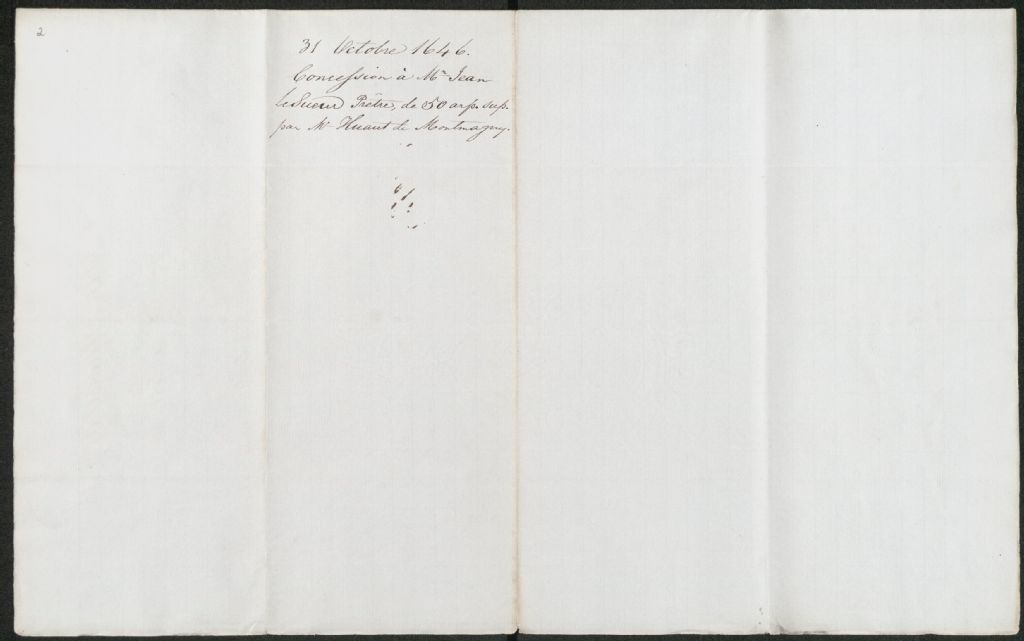 2
31 Octobre 1646.
Concession à Mr Jean
LeSueur Prêtre, de 50 arp. sup.
par Mr Huaut de Montmagny.